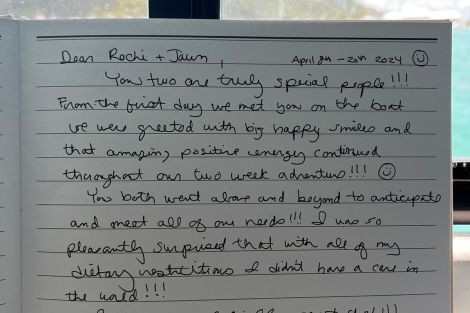 Dear Rochi + Jawn, April 7th - 20th 2024
You two are truly special people!!!
From the first day we met you on the boat
we were greeted with big happy smiles and
that amazing positive energy continued
throughout our two week adventure!!!
You both went above and beyond to anticipate
and meet all of our needs!!! I was so
pleasantly surprised that with all of my
dietary restrictions I didn't have a care in
the world!!!